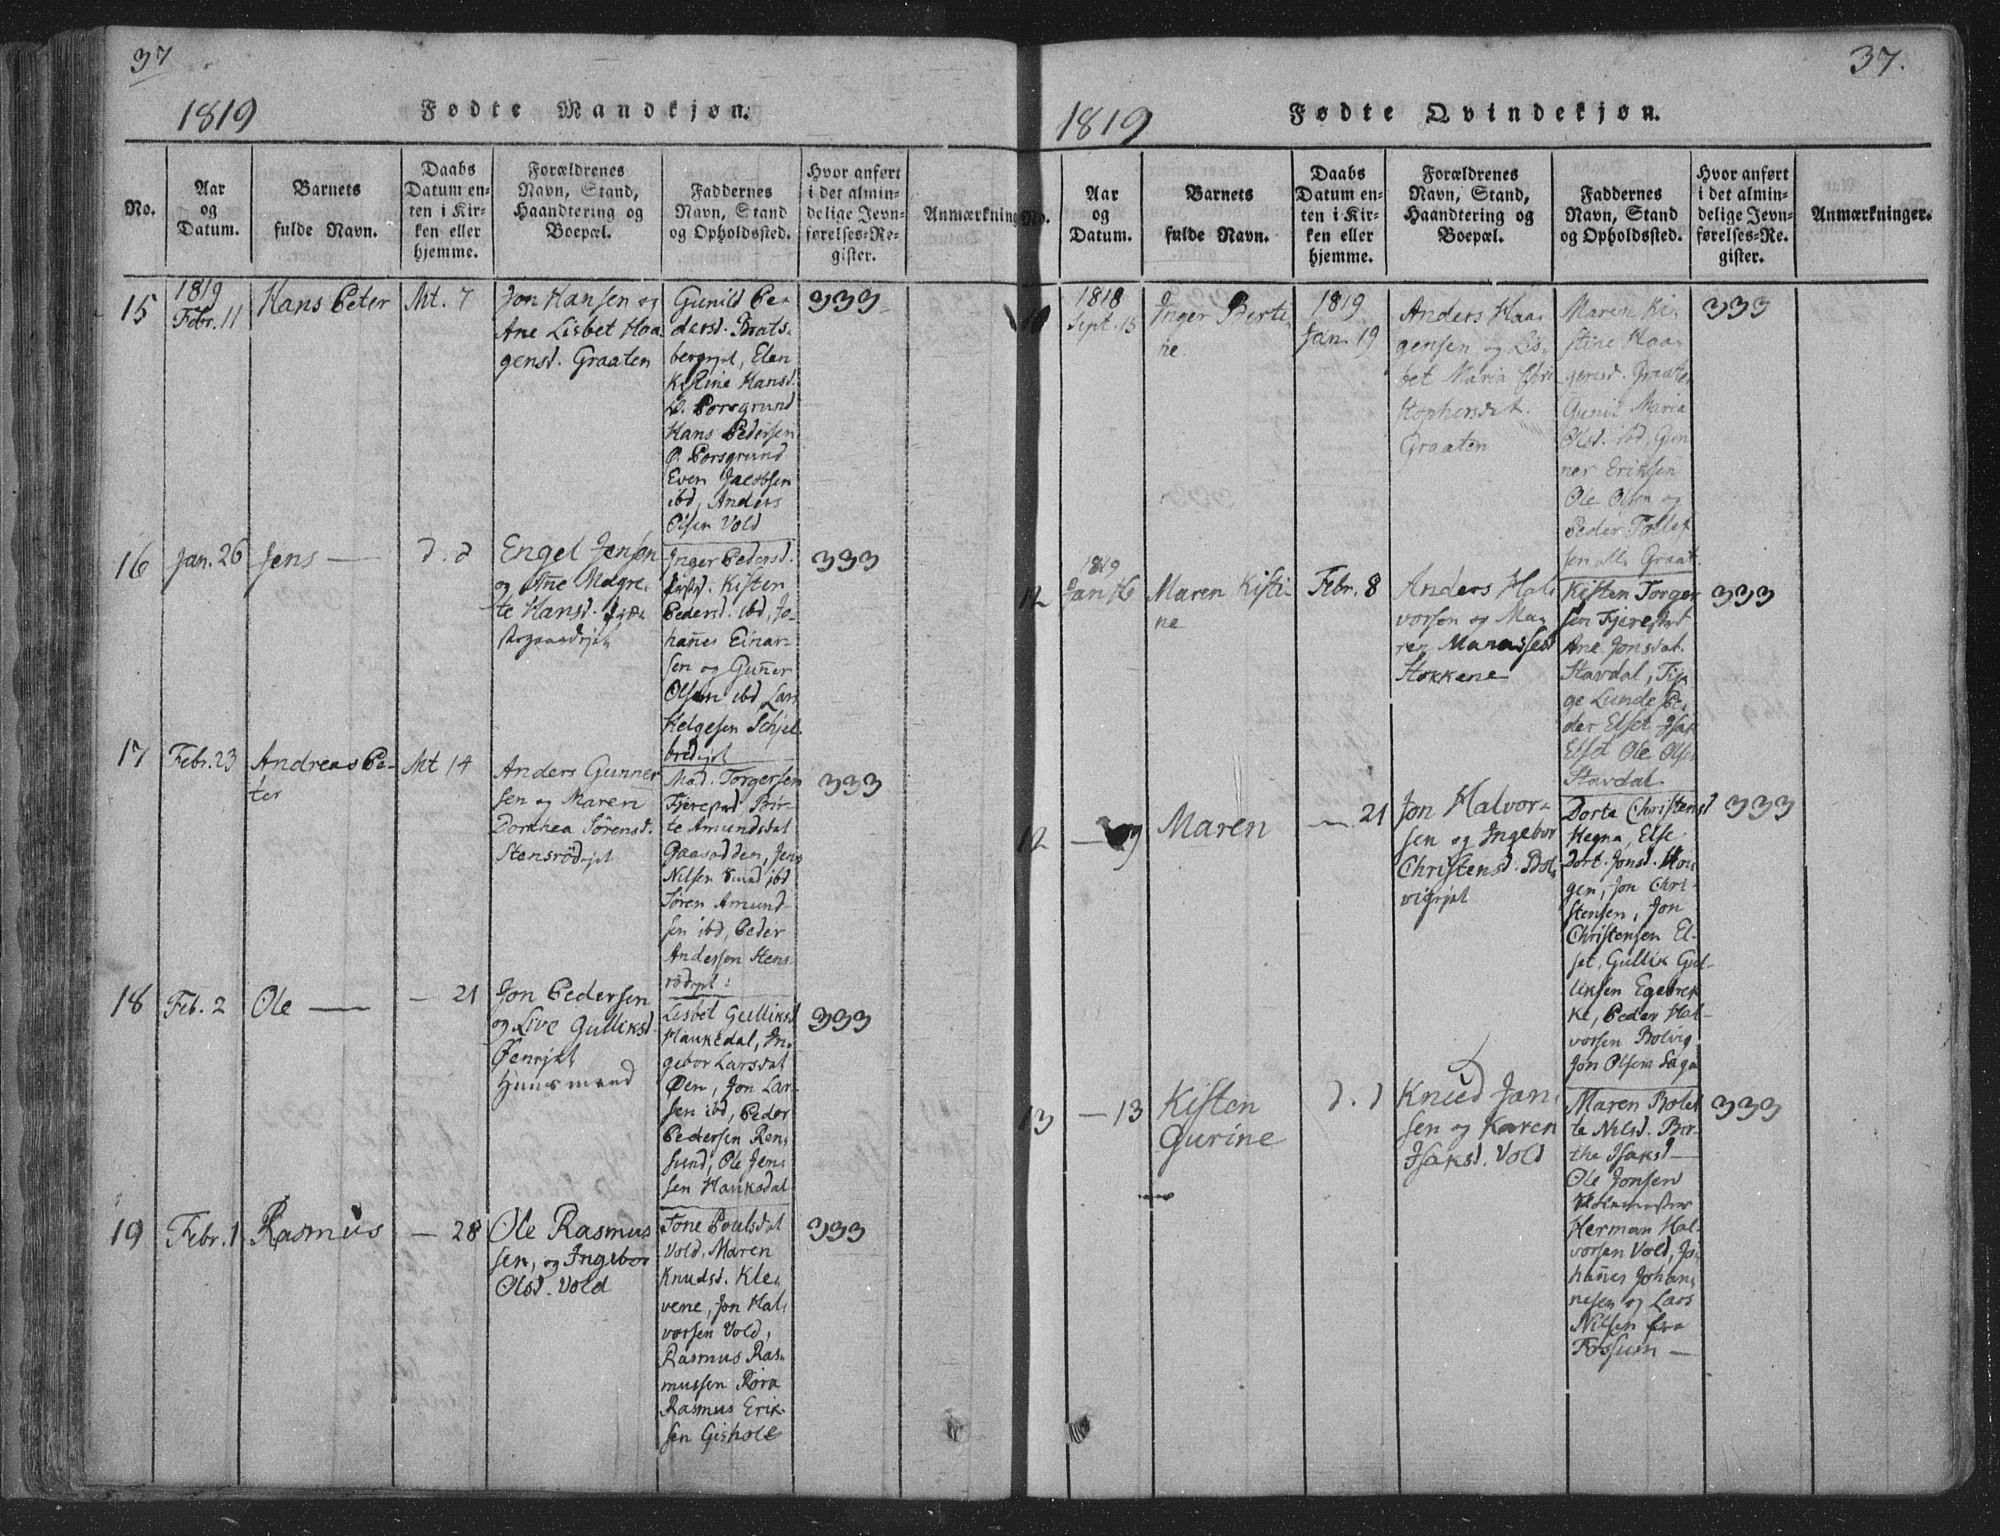 37
1819
Fødte Mandkjøn.
No.
Aar
og
Datum.
Barnets
fulde Navn.
Daabs
Datum en-
ten i Kir-
ken eller
hjemme.
Forældrenes
Navn, Stand,
Haandtering og
Boepæl.
Faddernes
Navn, Stand
og Opholdssted.
Hvor anført
i det almin-
delige Jevn-
førelses-Re-
gister.
Anmærkning
15
1819
Febr. 11
Hans Peter
Mt. 7
Jon Hansen og
Ane Lisbet Haa
gensd. Graaten
Gunild Pe-
dersd. Brats-
bergejet, Elen
Kistine Hansd.
Porsgrund
Hans Pedersen
Porsgrund
Even Jacobsen
ibd, Anders
Olsen Vold
333
16
Jan. 26
Jens —
d. d
Engel Jensen
og Ane Magre-
te Hansd.
Inger Pedersd.
Kisten
Pedersd. ibd, Jo-
hañes Einar-
sen og Guñer
Olsen ibd, Lars
Helgesen Schjel-
bredejet
333
17
Febr. 23
Andreas Pe-
ter
Mt 14
Anders Gunner
sen og Maren
Dorthea Sörensd.
Stensrödejet
Mad. Torgersen
Fjerestad Bir-
te Amundsdat
Gaasodden, Jens
Nilsen Sund ibd
Sören Amund-
sen ibd, Peder
Andersen Stens-
rödejet:
333
18
Feb. 2
Ole —
— 21
Jon Pedersen
og Live Gulliksd.
Øenejet
Huusmand
Lisbet Gulliksd
Haukedal, In-
gebor Larsdat
Øen, Jon Lar-
sen ibd, Peder
Pedersen Ren-
sund, Ole Jen-
sen Haukedal
333
19
Febr. 1
Rasmus
— 28
Ole Rasmus
sen, og Ingebor
Olsd. Vold
Tone Poulsdat
Vold, Maren
Knudsd. Kle-
vene, Jon Hal-
vorsen Vold,
Rasmus Ras-
mussen Rora
Rasmus Erik-
sen Gisholt
333
37.
1819
Fødte Qvindekjøn.
No.
Aar
og
Datum.
Barnets
fulde Navn.
Daabs
Datum en-
ten i Kir-
ken eller
hjemme.
Forældrenes
Navn, Stand,
Haandtering og
Boepæl.
Faddernes
Navn, Stand
og Opholdssted.
Hvor anført
i det almin-
delige Jevn-
førelses-Re-
gister.
Anmærkninger.
1818
Sept. 15
Inger Berte-
ne
1819
Jan. 19
Anders Haa-
gensen og Lis-
bet Maria Chri
stophersdat.
Graaten
Maren Ki-
stine Haa-
gensd. Graaten
Gunil Maria
Olsd. ibd, Gun
ner Eriksen
Ole Olsen og
Peder Tollef
sen alle Graat.
333
12
1819
Jan 16
Maren Kisti-
ne
Febr. 8
Anders Hal-
vorsen og Ma-
ren Manassesd
Stokkene
Kisten Torger
sen Fjerestad
Ane Jonsdat.
Stavdal, Tij-
ge Lunde Pe-
der Elset Isak
Elset Ole Olsen
Stavdal
333
12
— 9
Maren
— 21
Jon Halvor-
sen og Ingebor
Christensd. Bol-
vigejet
Dorte Christensd
Hegna, Else
Dort. Jonsd. Hou-
gen, Jon Chri-
stensen, Jon
Christensen El-
set, Gullik Gul-
liksen Egebrek
ke, Peder Hal-
vorsen Bolvig
Jon Olsen Saga
333
13
— 13
Kisten
Gurine
d. d
Knud Jan-
sen og Karen
Isaksd. Vold
Maren Bolet-
te Nilsd. Bir-
the Isaksd —
Ole Jonsen
Herman Hal-
vorsen Vold, Jo-
hañes Johan-
nesen og Lars
Nilsen fra
Fossum —
333